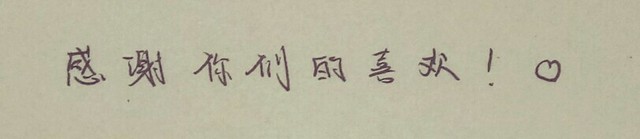 感谢你们的喜欢！♡